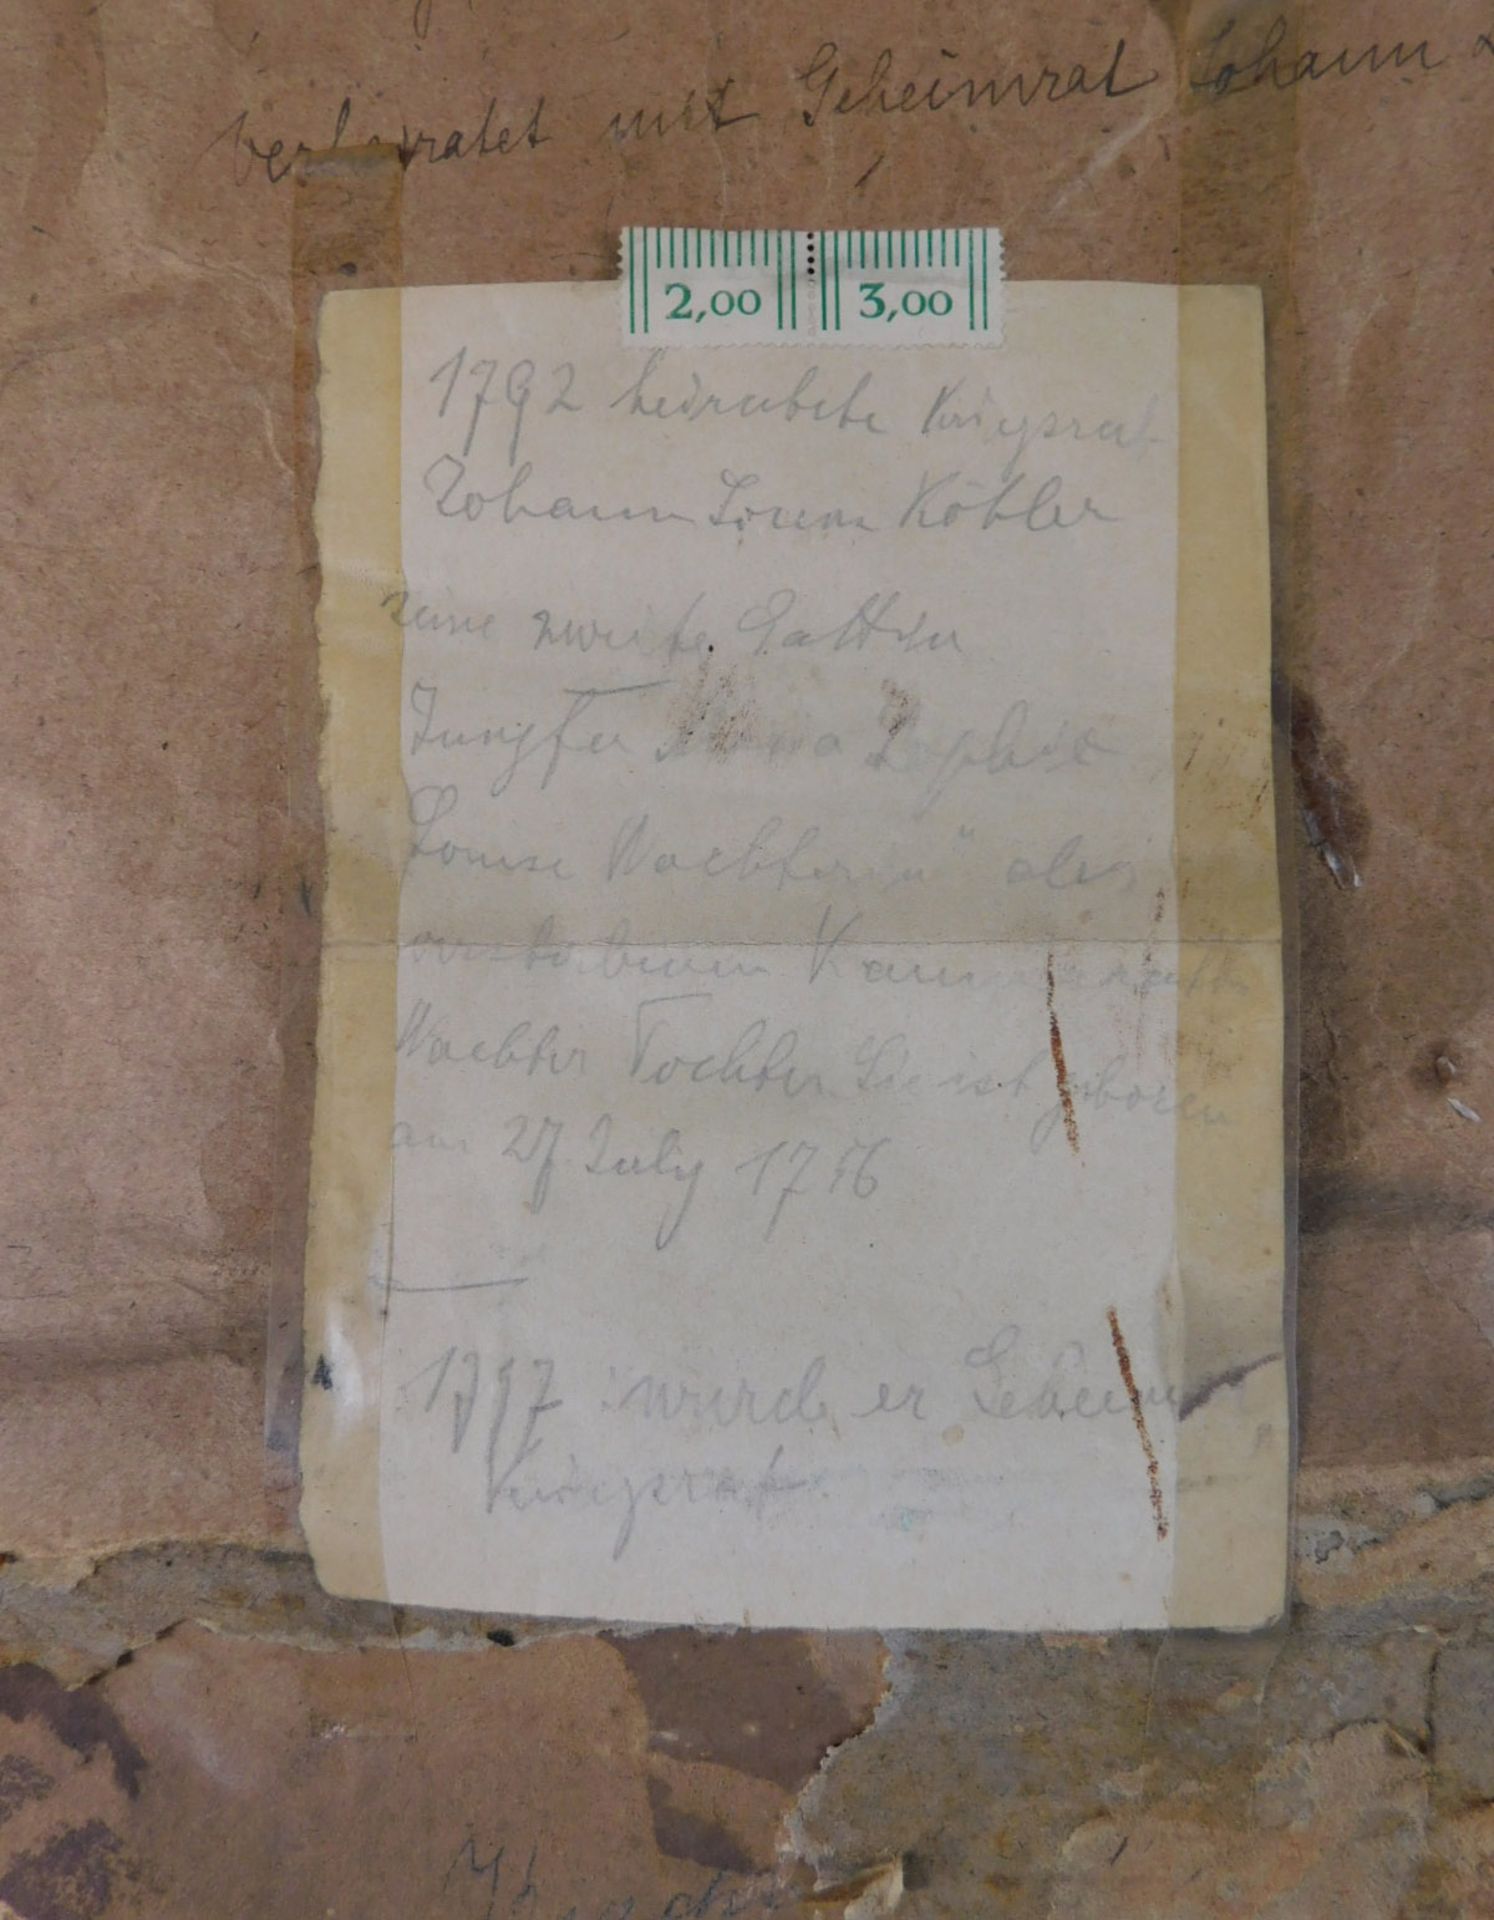 verheiratet mit Geheimrat Johann
2,00 3,00
1792 heiratete Kriegsrat
Johann Lorenz Köhler
seine zweite Gattin
Jungfer Sophia
Louise Wachterin" des
verstorbenen Kammerrats
Wachter Tochter. Sie ist geboren
am 27 July 1756
1797 wurde er Geheimer
Kriegsrat.